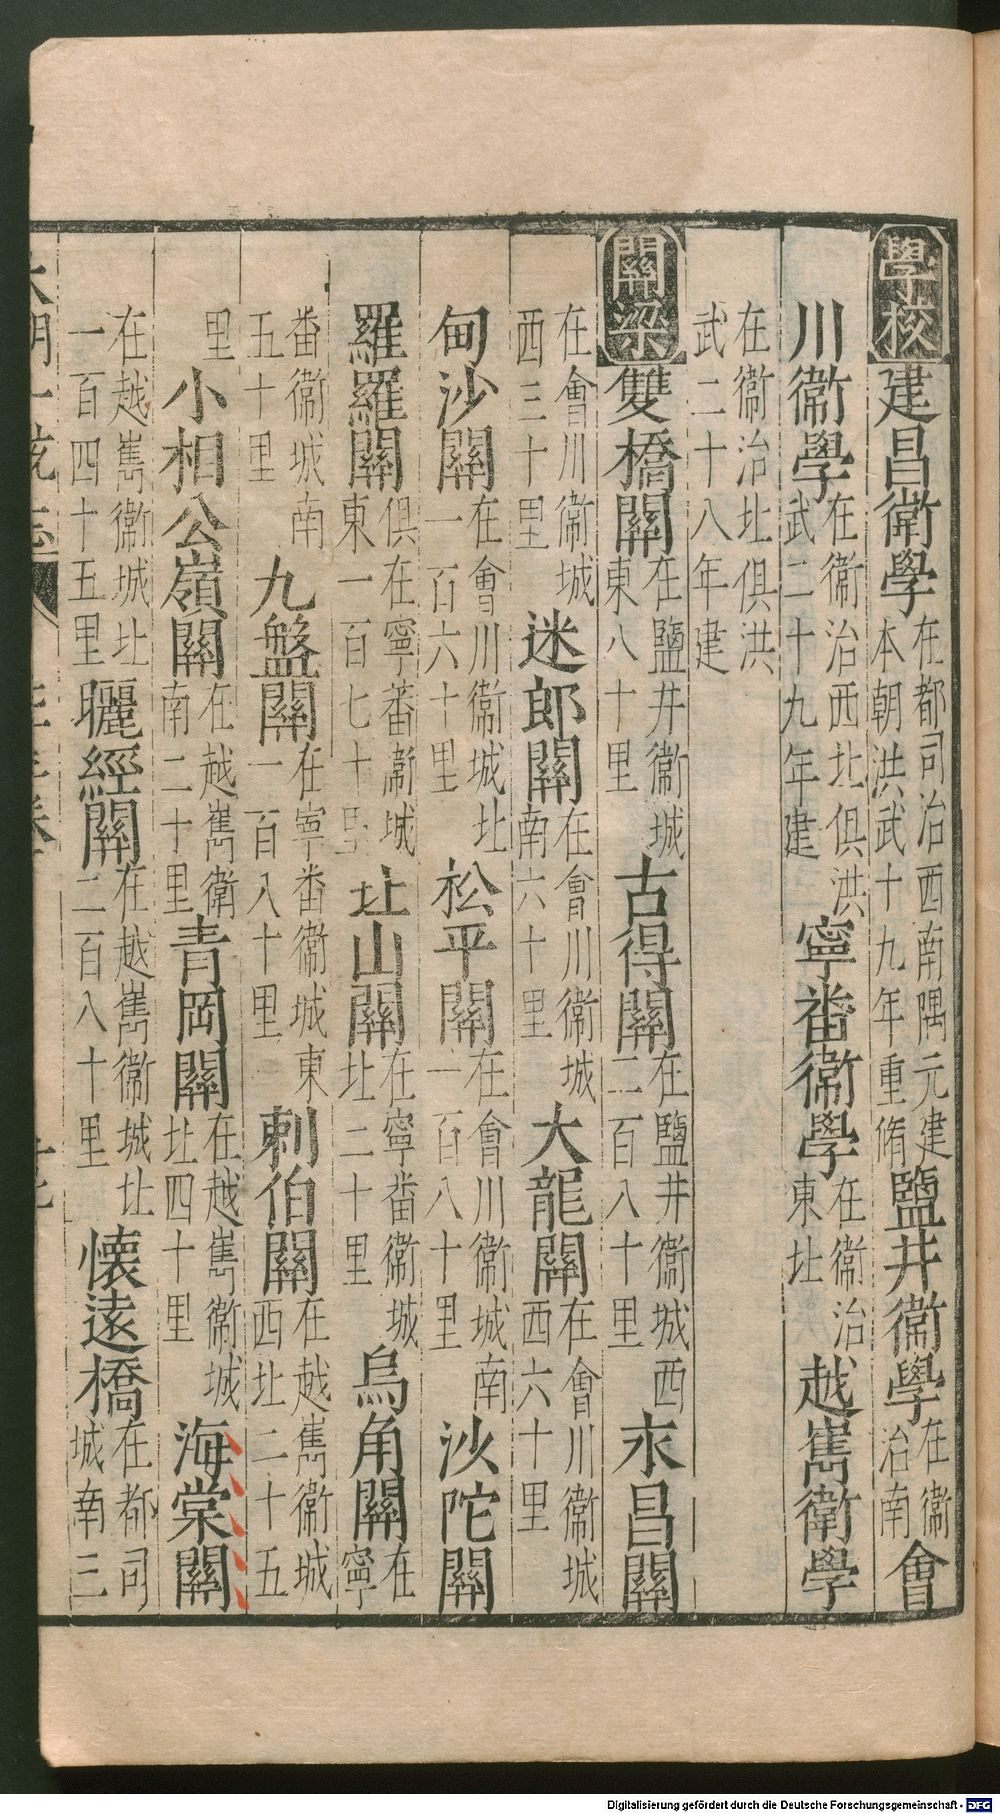 學校建昌衛學在都司治西南隅元建本朝洪武十九年重脩鹽井衛學在衛治南會
川衛學在衛治西北俱洪武二十九年建寧番衛學在衛治東北越嶲衛學
在衛治北俱洪武二十八年建
關梁雙橋關在鹽井衛城東八十里古得關在鹽井衛城西二百八十里永昌關
在會川衛城西三十里迷郎關在會川衛城南六十里大龍關在會川衛城西六十里
甸沙關在會川衛城北一百六十里松平關在會川衛城南一百八十里沙陀關
羅羅關俱在寧番衛城東一百七十里北山關在寧番衛城北二十里烏角關在寧
番衛城南五十里九盤關在寧番衛城東一百八十里剌伯關在越嶲衛城西北二十五
里小相公嶺關在越嶲衛南二十里青岡關在越嶲衛城北四十里海棠關
在越嶲衛城北一百四十五里曬經關在越嶲衛城北二百八十里懷遠橋在都司城南三
Digitalisierung gefördert durch die Deutsche Forschungsgemeinschaft - DFG